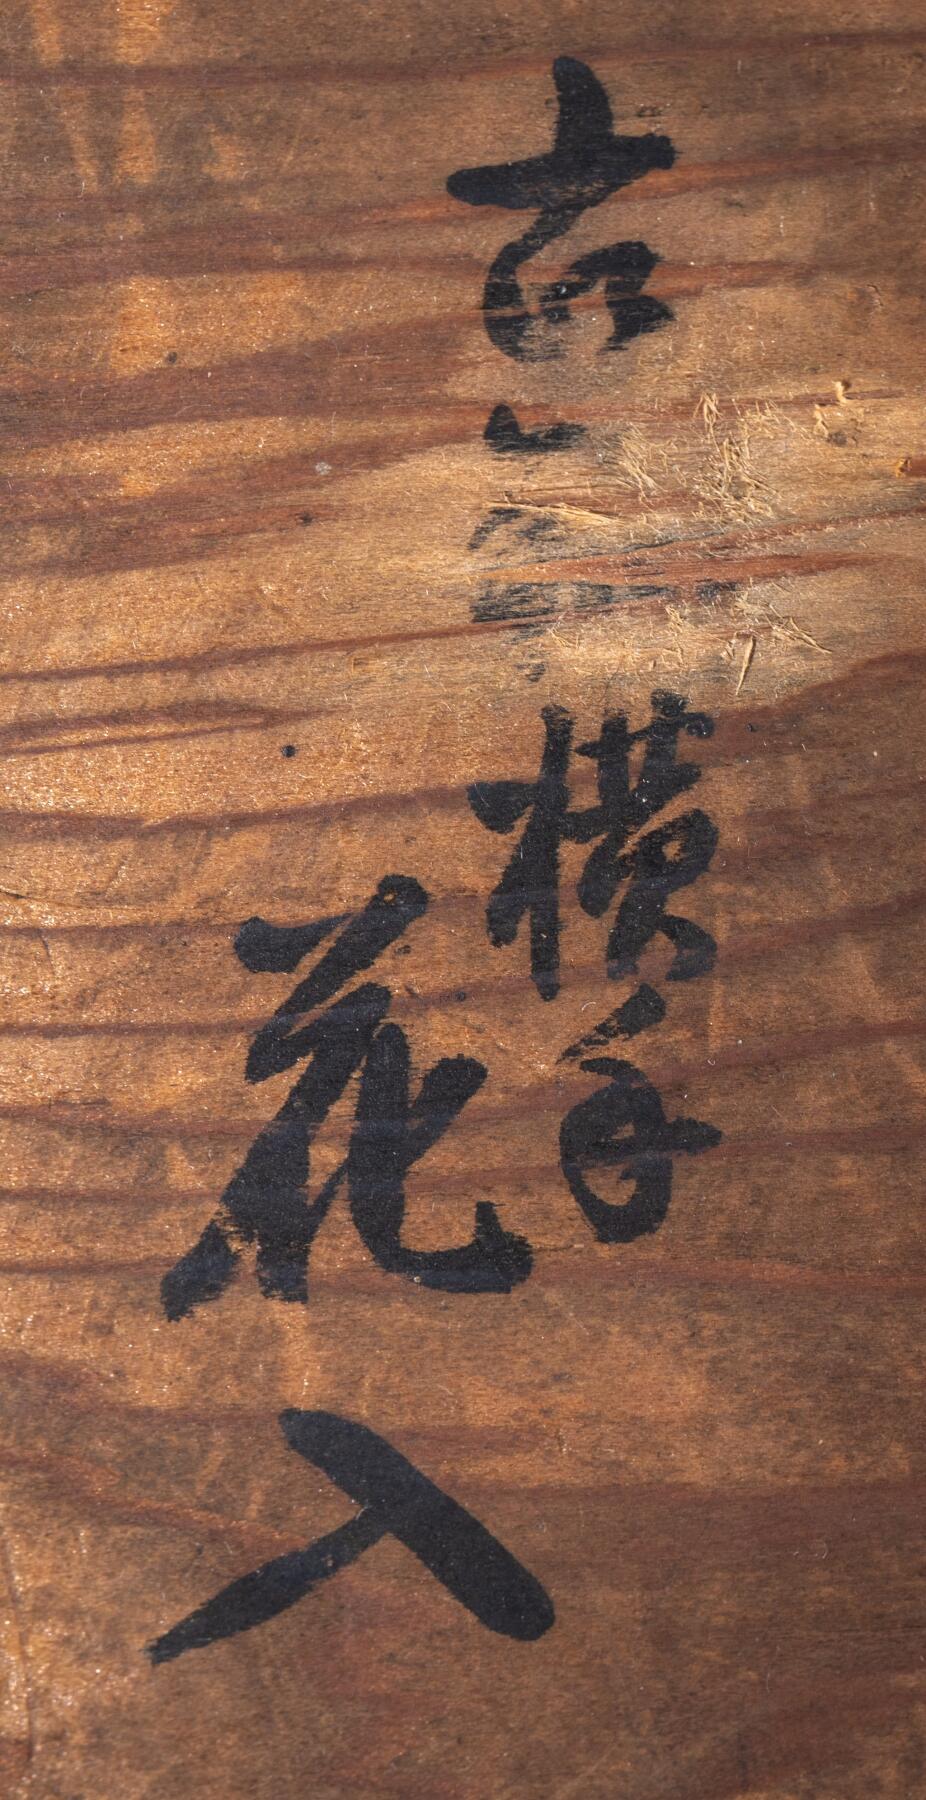 古
横手
花入